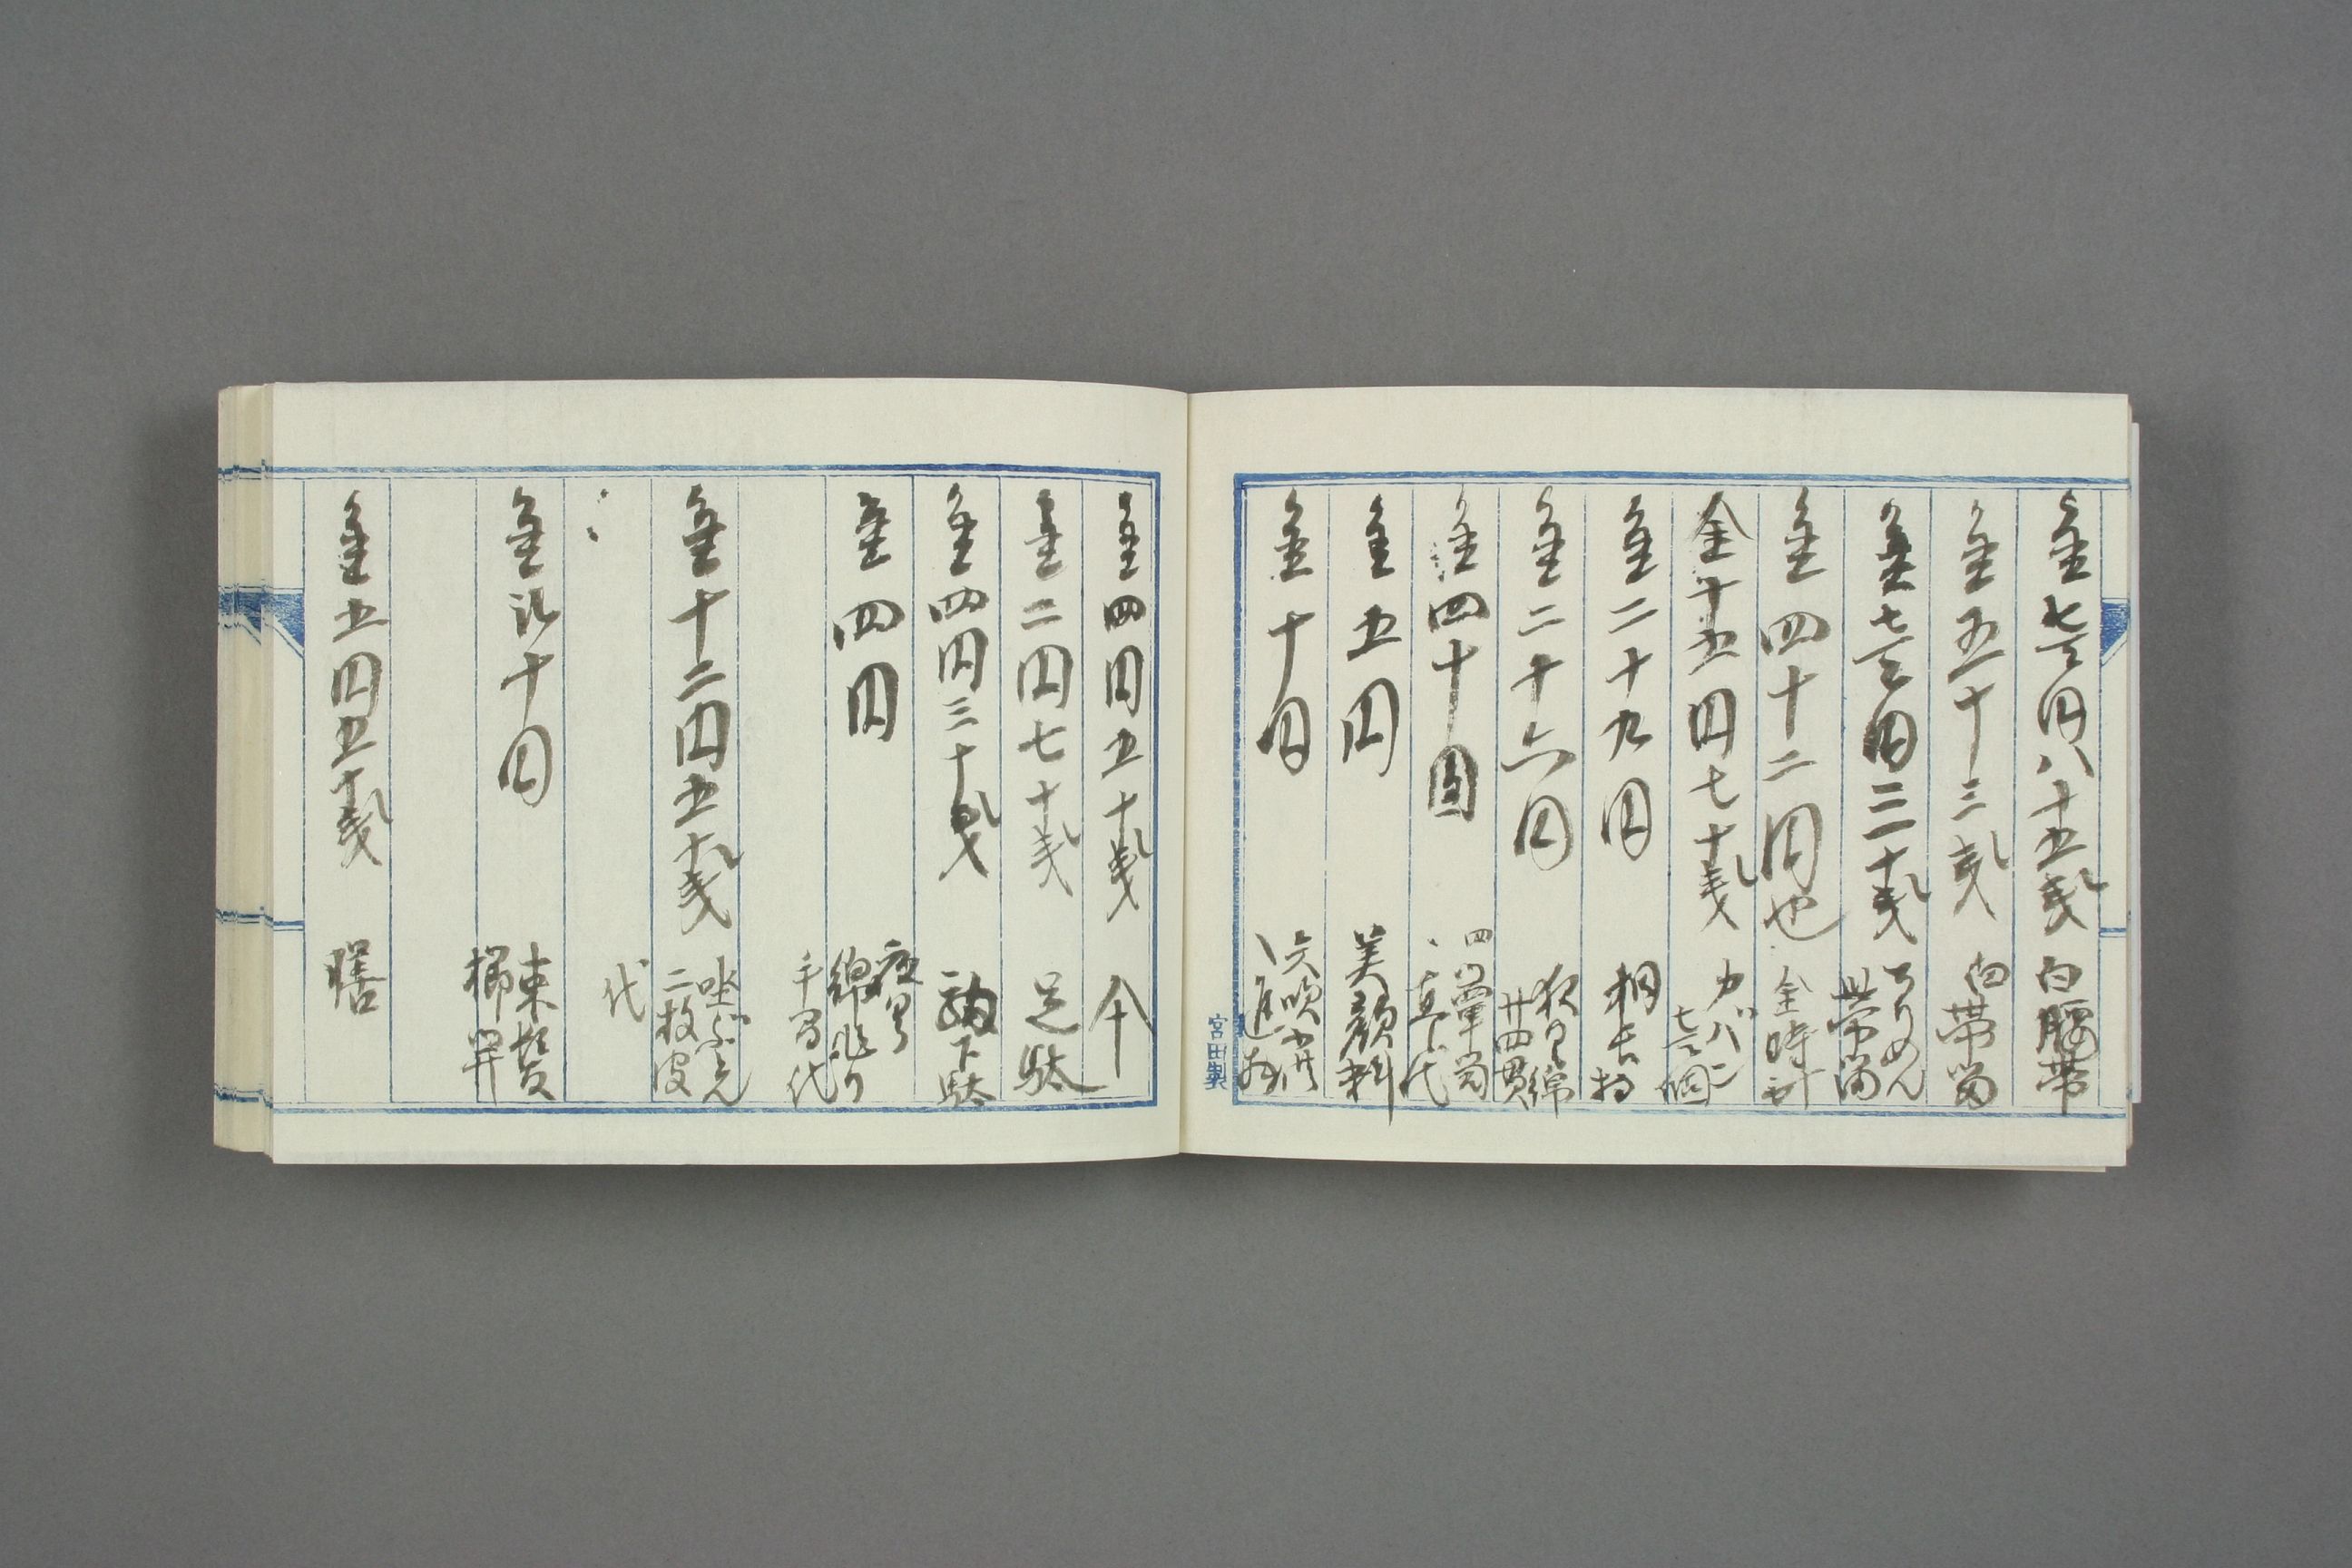 金七円八十五銭 白腰帯
金五十三銭 白帯留
金七円三十銭 ちりめん
帯留
金四十二円也 金時計
金十五円七十銭 カバン
七個
金二十九円 桐長持
金二十六円 夜具綿
廿四貫
金四十円
代
金五円 美顔料
金十円
宮田製
金四円五十銭 傘
金二円七十銭 足駄
金四円三十銭 下駄
金四円 夜具
綿作り
手間代
金十二円五十銭 坐ぶとん
二枚皮
代
金弐十円 束髪
櫛笄
金五円五十銭 膳